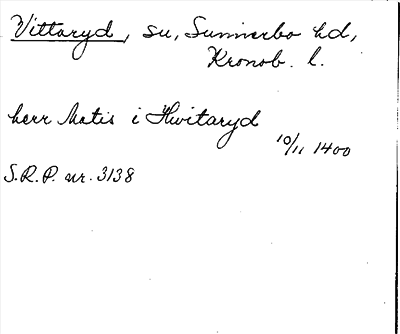 Vittaryd, sn, Sunnerbo hd,
Kronob. l.
herr Matis i Hwitaryd
10/11 1400
S.R.P. nr. 3138